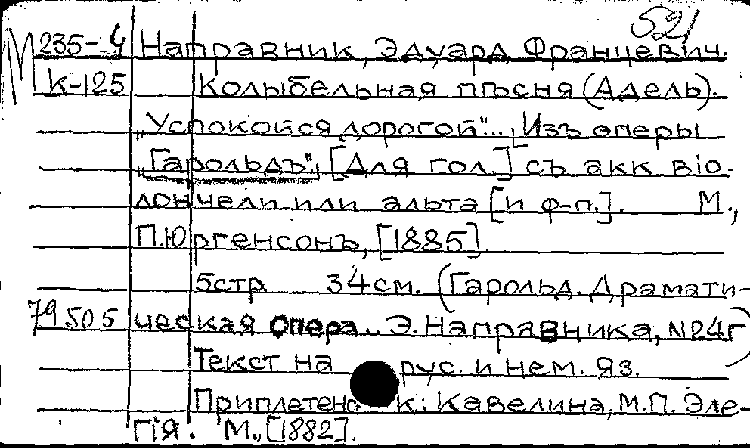 521
М 235-4 Направник, Эдуард Францевич.
К-125 Колыбельная пѣсня (Адель).
„Успокойся дорогой"... Изъ оперы
„Гарольдъ", [Для гол.] съ акк віо-
лончели или альта [и ф-п.]. М.,
П.Юргенсонъ, [1885].
5стр 34см. (Гарольд. Драмати-
79505 ческая опера.. Э. Направника, №24г)
Текст на рус. и нем. яз.
Приплетено к: Кавелина, М.П. Эле-
гія. М., [1882].